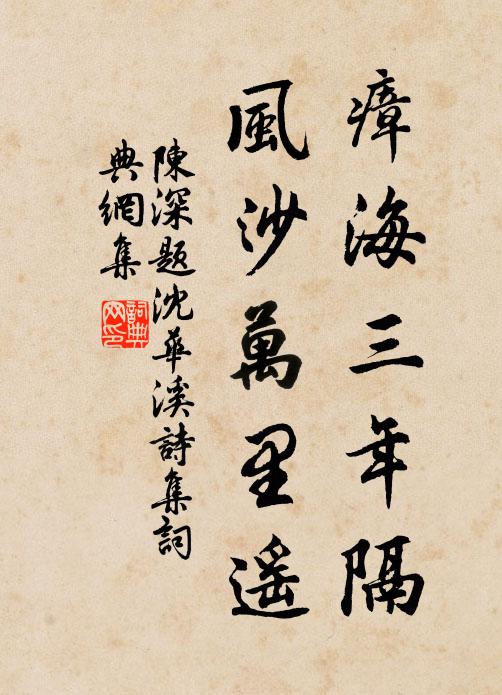 瘴海三年隔
風沙萬里遥
陳深题沈華溪詩集詞
典網集
詞典
网印